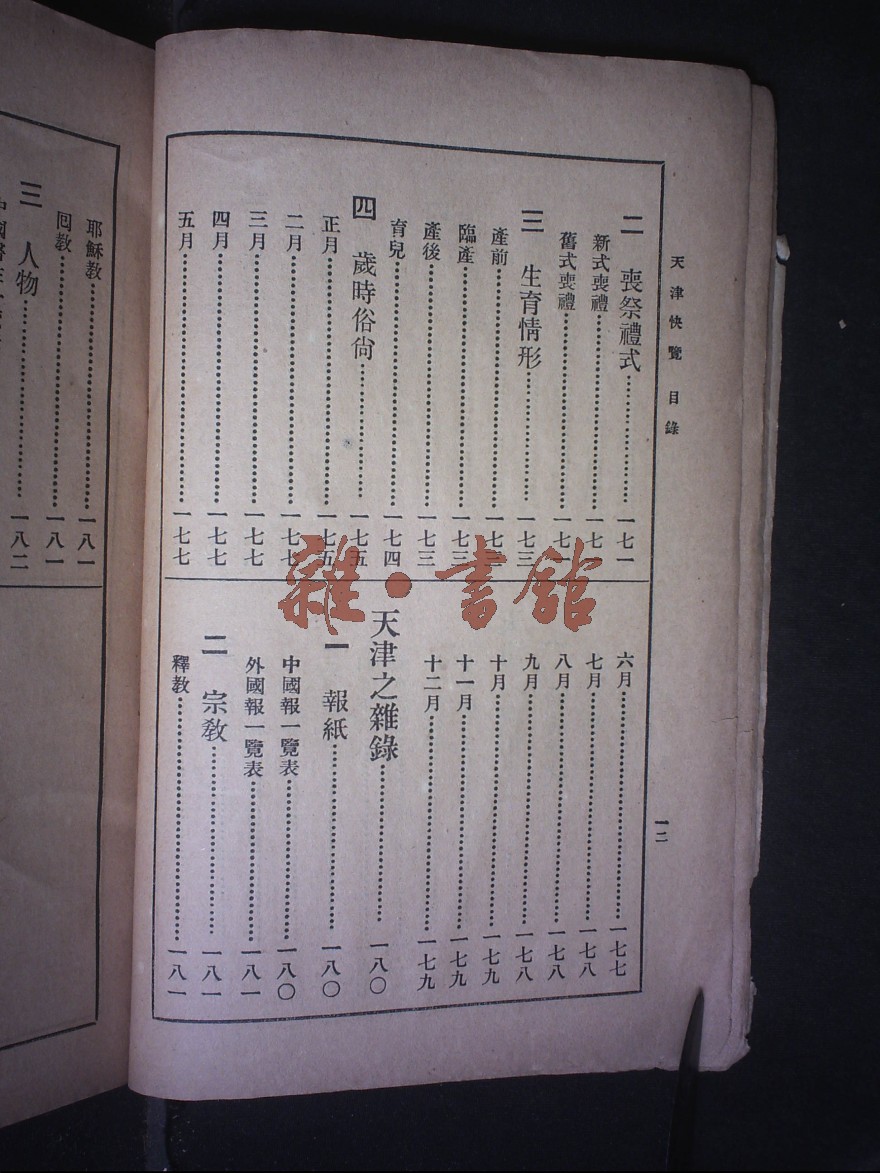 天津快覽 目錄
一二
二 喪祭禮式…………一七一
新式喪禮…………一七
舊式喪禮…………一七
三 生育情形…………一七三
產前…………一七
臨產…………一七三
產後…………一七三
育兒…………一七四
四 歲時俗尙…………一七五
正月…………一七五
二月…………一七七
三月…………一七七
四月…………一七七
五月…………一七七
六月…………一七七
七月…………一七八
八月…………一七八
九月…………一七八
十月…………一七九
十一月…………一七九
十二月…………一七九
天津之雜錄…………一八〇
一 報紙…………一八〇
中國報一覽表…………一八〇
外國報一覽表…………一八一
二 宗敎…………一八一
釋敎…………一八一
耶穌敎…………一八一
回敎…………一八一
三 人物…………一八二
雜·書館